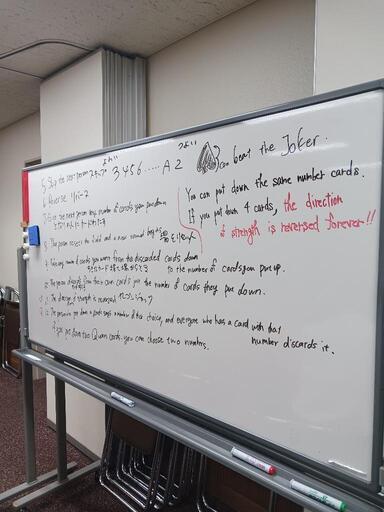 よわい 3 4 5 6 ..... A 2 つよい
can beat the Joker.
5. Skip the next person スキップ
6. Reverse リバース
7. Give the next person any number of cards you put down
8. The person resets the field and a new round begins
9. Take any number of cards you want from the discarded cards down
to the number of cards you put up.
10. The person discards from their own cards just the number of cards they put down.
J. The direction of strength is reversed
Q. The person who put down a card says number of their choice, and everyone who has a card with that
number discards it.
If you put down two Queen cards, you can choose two numbers.
You can put down the same number cards.
If you put down 4 cards, the direction
of strength is reversed forever!!